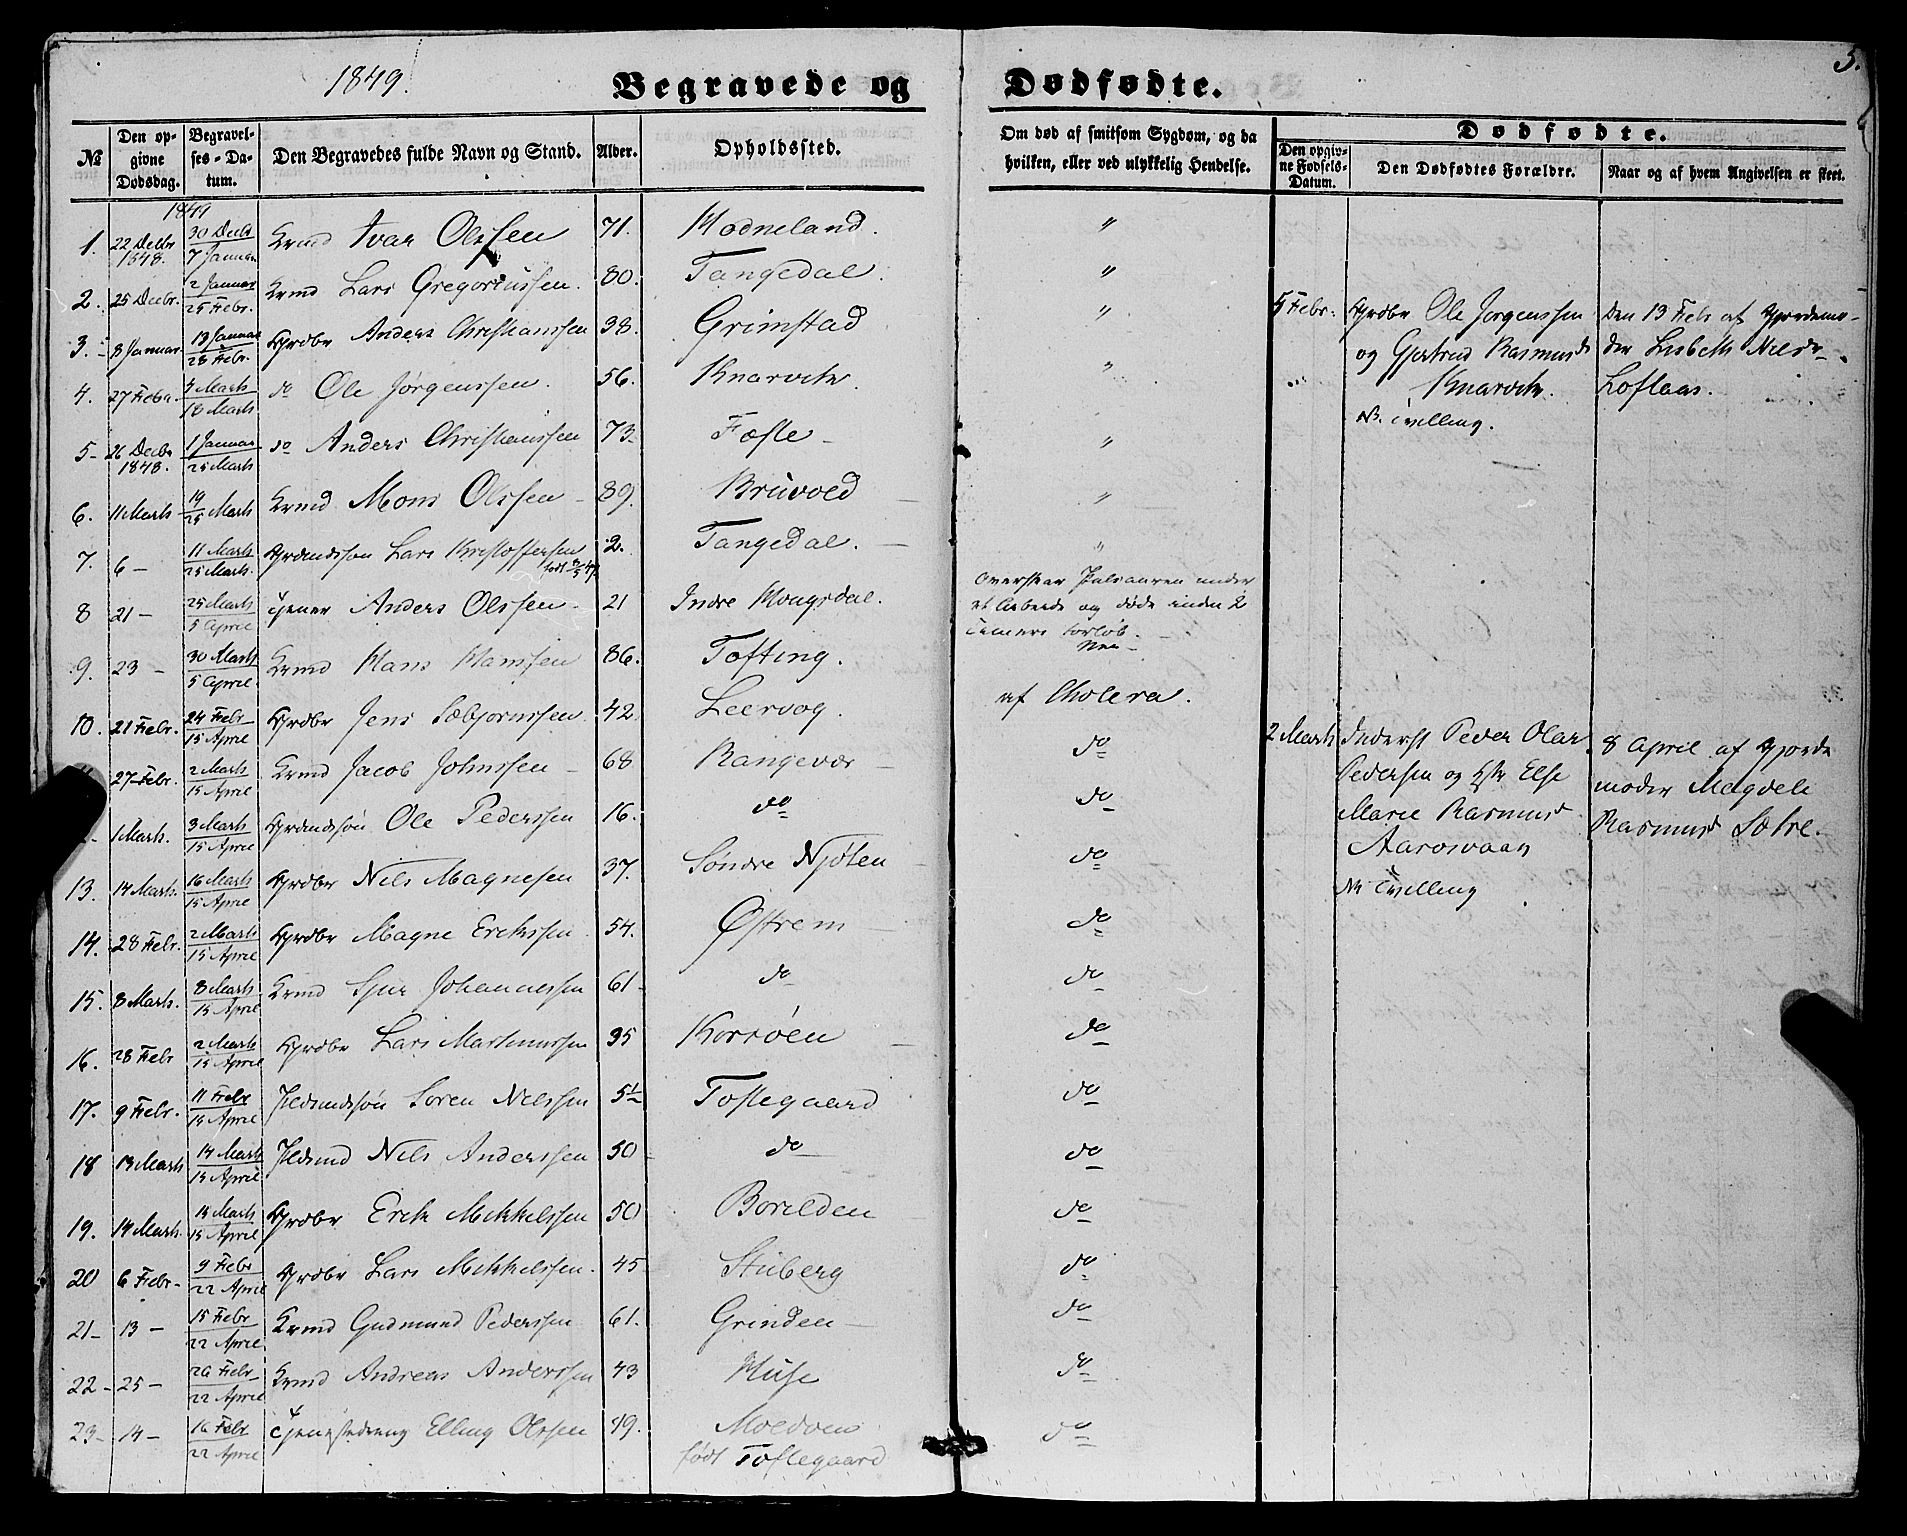 5.
1849.
Begravede og Dødfødte.
№
Den opgivne Dødsdag.
Begravelses-Datum.
Den Begravedes fulde Navn og Stand.
Alder.
Opholdssted.
Om død af smitsom Sygdom, og da hvilken, eller ved ulykkelig Hendelse.
Dødfødte.
Den opgivne Fødsels-Datum.
Den Dødfødtes Forældre.
Naar og af hvem Angivelsen er skeet.
1849
1. 22 Decbr 1848. 30 Decbr / 7 Januar Krmd Ivar Olssen 71. Modneland. "
2. 25 Decbr. 2 Januar / 25 Febr. Krmd Lars Gregoriussen. 80. Tangedal. "
3. 8 Januar. 13 Januar / 28 Febr. Grdbr Anders Christianssen 38. Grimstad "
4. 27 Febr. 4 Marts / 18 Marts do Ole Jørgenssen. 56. Knarvik. "
5 26 Decbr 1848. 1 Januar / 25 Marts do Anders Christianssen 73 Fæste "
6. 11 Marts 19 / 25 Marts Krmd Mons Olssen 89. Bruvold "
7. 6 — 11 Marts / 25 Marts. Grdmdssøn Lars Kristoffersen 2. Tangedal. "
8 21 — 25 Marts / 5 April Tjener Anders Olssen 21 Indre Mongsdal. Overskar Pulsaaren under et Arbeide og døde inden 2 Timers Forløb.
9. 23 — 30 Marts / 5 April. Krmd Hans Hanssen 86. Tofting. Nei
10. 21 Febr. 24 Febr / 15 April Grdbr Jens Sæbjørnssen. 42. Leervog. af Cholera.
27 Febr. 2 Marts / 15 April Krmd Jacob Johnssen 68 Rangevær do
1 Marts. 3 Marts / 15 April Grdmdssøn Ole Pederssen 16. do do
13. 14 Marts. 16 Marts / 15 April Grdbr Nils Magnesen 37. Søndre Njøten do
14. 28 Febr. 2 Marts / 15 April Grdbr Magne Erikssen. 54. Østrem do
15. 8 Marts. 8 Marts / 15 April Krmd Sjur Johannessen 61 do do
16. 28 Febr 2 Marts / 15 April Grdbr Lars Martinussen 35 Korsøen do
17. 9 Febr. 11 Febr / 15 April Søren Nilssen Toftegaard do
18 13 Marts 14 Marts / 15 April Nils Anderssen 50 do do
19. 14 Marts. 14 Marts / 15 April Grdbr Erik Mikkelssen 50 Borilden do
20 6 Febr. 9 Febr / 22 April Grdbr Lars Mikkelssen. 45 Stuberg do
21 13 — 15 Febr / 22 April Krmd Gudmund Pederssen 61. Grinden do
22 25 — 26 Febr / 22 April Krmd Andreas Anderssen 43 Huse do
23 14 — 16 Febr / 22 April Tjenestedreng Elling Olssen 19. født Toftegaard do
5 Febr. Grdbr Ole Jørgenssen og Gjertrud Rasmusd Knarvik. NB. Tvilling. Den 13 Febr af Gjordemoder Lisbeth Nilsdr Loftaas.
2 Marts Inderst Peder Olai Pedersen og Hstr Else Marie Rasmusd Aarosvaag NB Tvilling 8 April af Gjordemoder Magdeli Rasmusd Sætre.